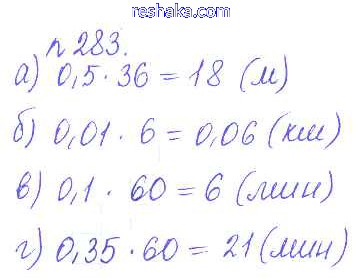 reshaka.com
n 283.
а) 0,5 · 36 = 18 (м)
б) 0,01 · 6 = 0,06 (км)
в) 0,1 · 60 = 6 (мин)
г) 0,35 · 60 = 21 (мин)